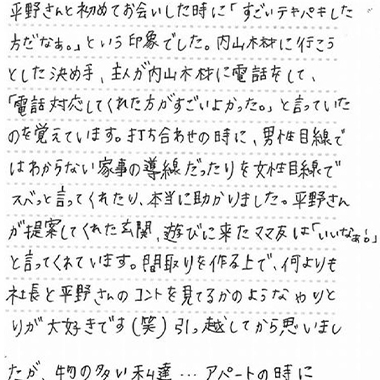 平野さんと初めてお会いした時に「すごいテキパキした
方だなぁ。」という印象でした。内山木材に行こう
とした決め手、主人が内山木材に電話をして、
「電話対応してくれた方がすごいよかった。」と言っていた
のを覚えています。打ち合わせの時に、男性目線で
はわからない家事の導線だったりを女性目線で
スパッと言ってくれたり、本当に助かりました。平野さん
が提案してくれた玄関、遊びに来たママ友は「いいなぁ!」
と言ってくれています。間取りを作る上で、何よりも
社長と平野さんのコントを見てるかのようなやりと
りが大好きです(笑)引っ越してから思いまし
たが、物の多い私達…アパートの時に